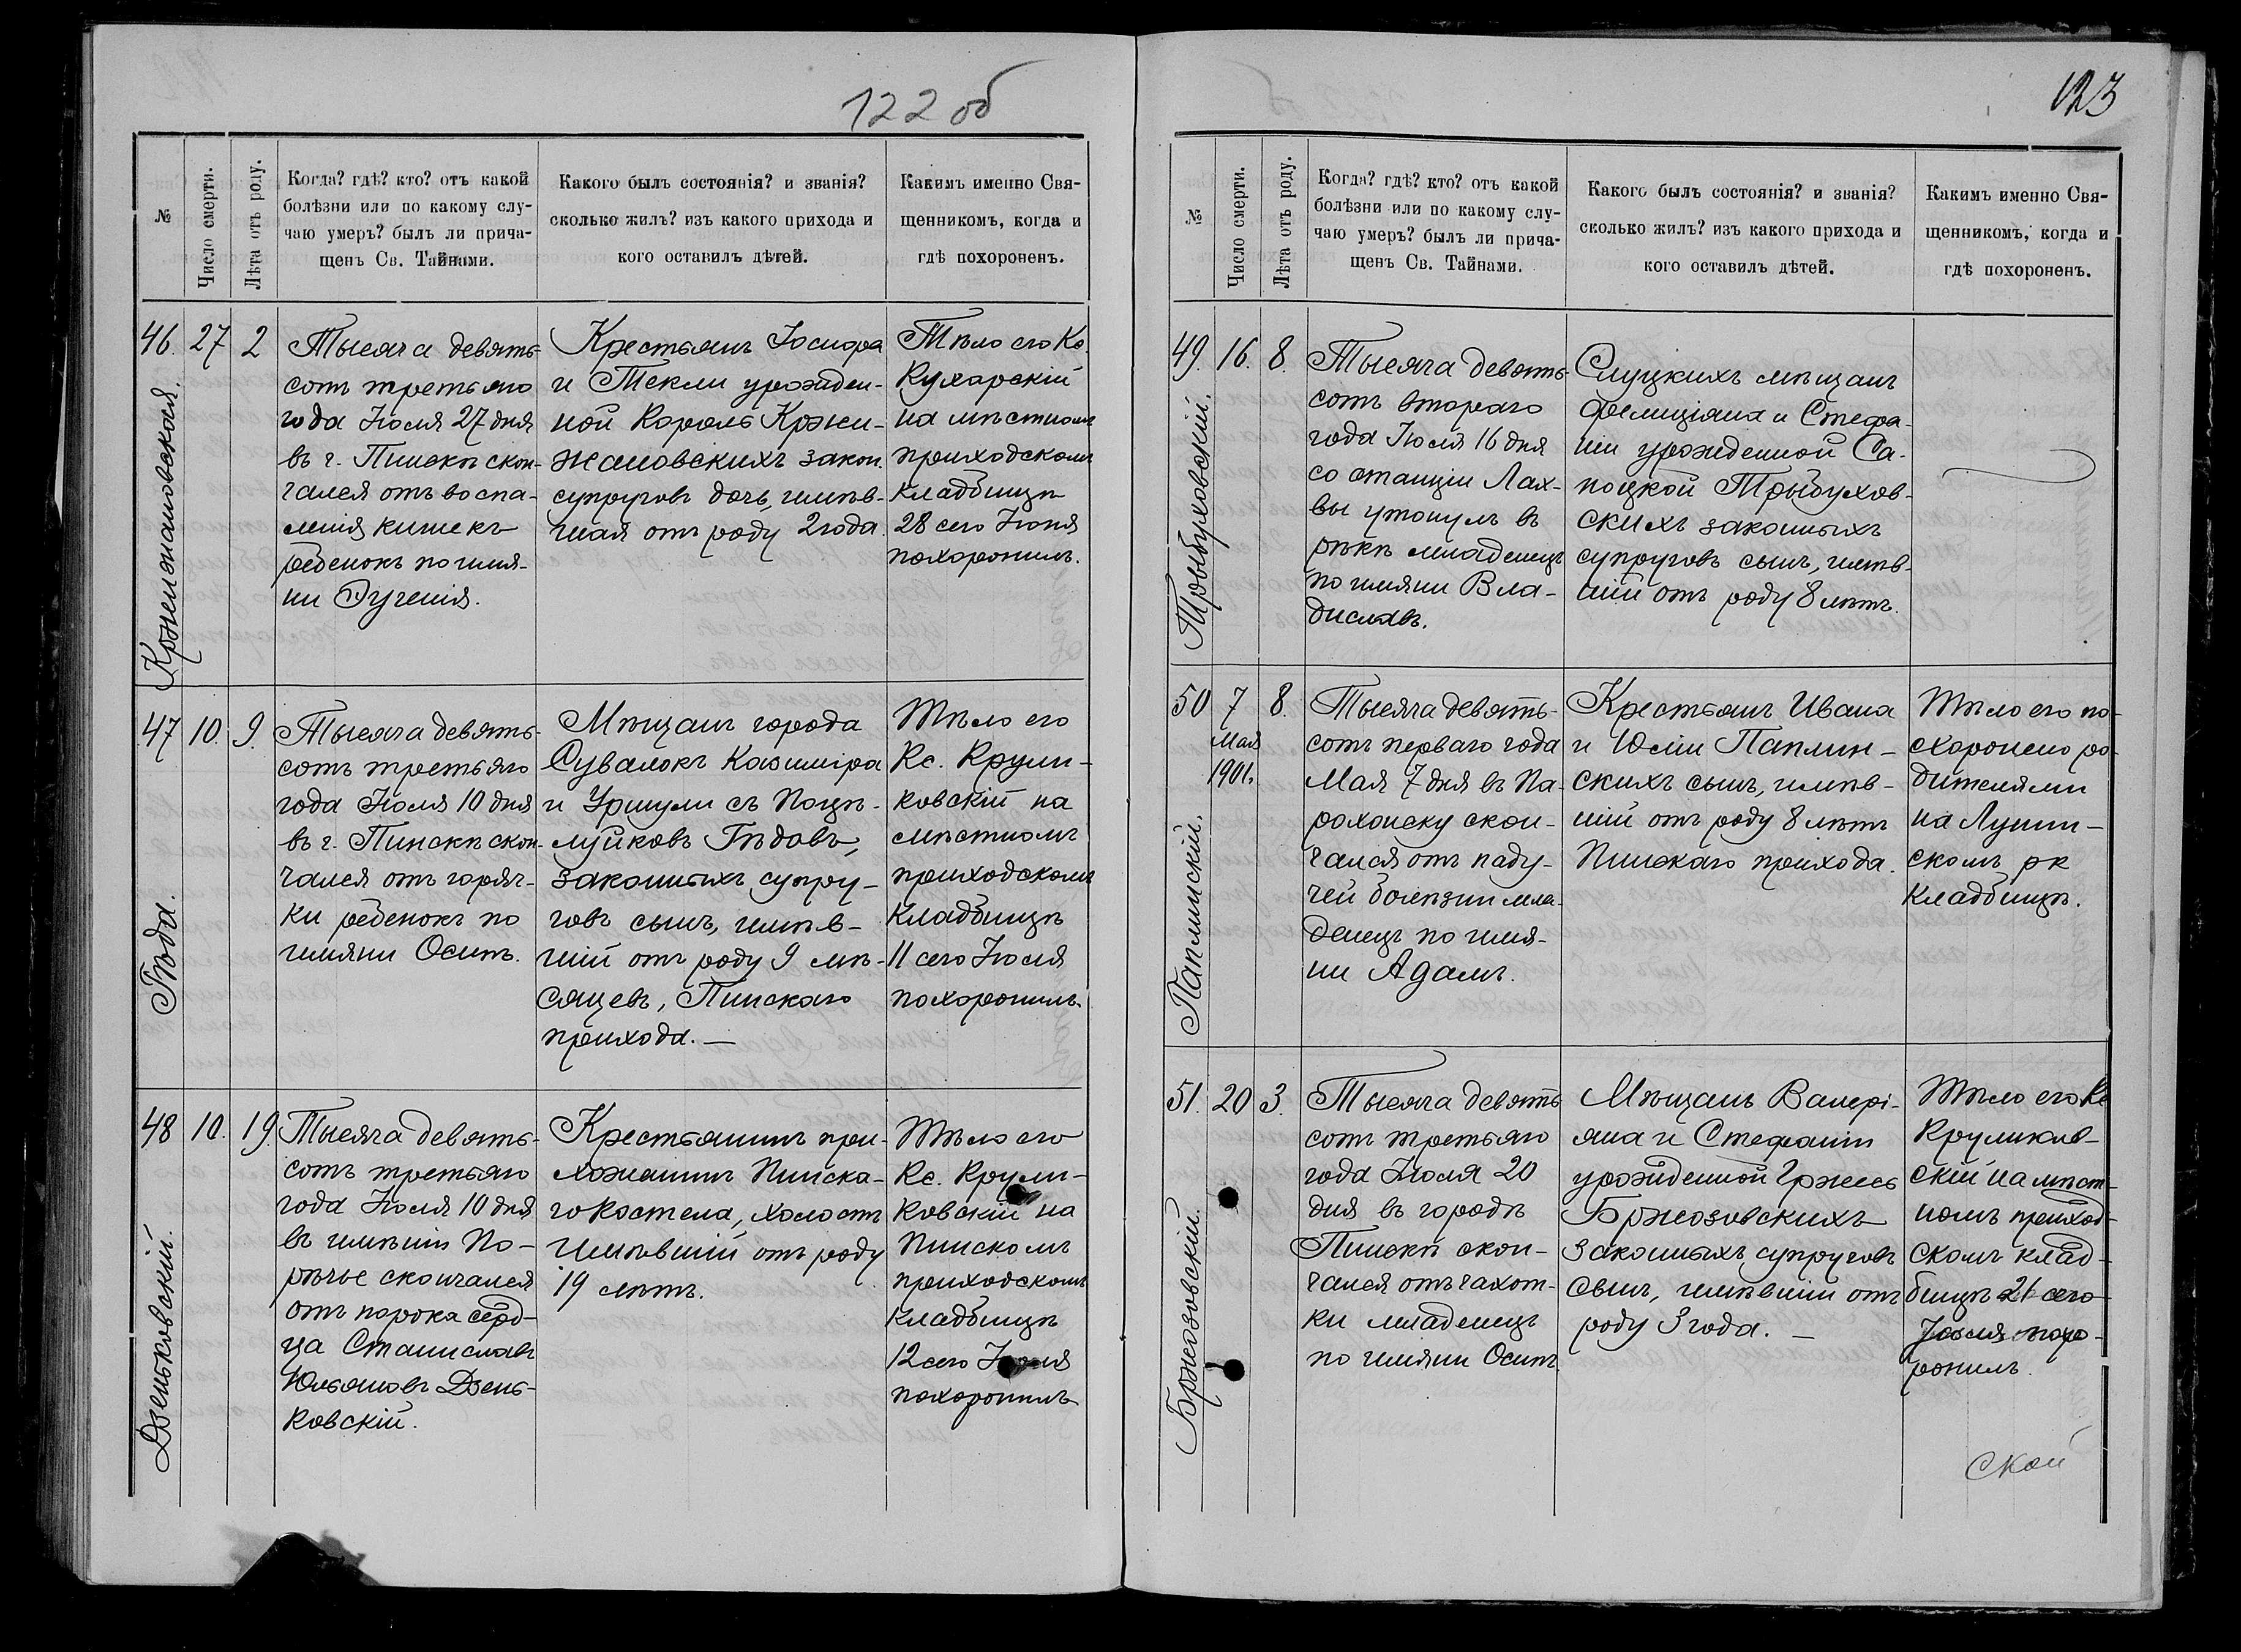 122 об
№
Число смерти.
Лѣта отъ роду.
Когда? гдѣ? кто? отъ какой
болѣзни или по какому слу-
чаю умеръ? былъ ли прича-
щенъ Св. Тайнами.
Какого былъ состоянія? и званія?
сколько жилъ? изъ какого прихода и
кого оставилъ дѣтей.
Какимъ именно Свя-
щенникомъ, когда и
гдѣ похороненъ.
46.
27
2
Тысяча девять-
сотъ третьяго
года Іюля 27 дня
въ г. Пинскѣ скон-
чался отъ воспа-
ленія кишекъ
ребенокъ по имя-
ни Эугенія.
Крестьянъ Іосифа
и Текли урожден-
ной Король Кржи-
жановскихъ закон.
супруговъ дочь, имѣв-
шая отъ роду 2 года.
Тѣло его Кс.
Кухарскій
на мѣстномъ
приходскомъ
кладбищѣ
28 сего Іюля
похоронилъ.
47
10.
9.
Гѣда.
Тысяча девять-
сотъ третьяго
года Іюля 10 дня
въ г. Пинскѣ скон-
чался отъ горяч-
ки ребенокъ по
имяни Осипъ.
Мѣщанъ города
Сувалокъ Казиміра
и Уршули съ Поцѣ-
луйковъ Гѣдовъ,
законныхъ супру-
говъ сынъ, имѣв-
шій отъ роду 9 мѣ-
сяцевъ, Пинскаго
прихода. —
Тѣло его
Кс. Крули-
ковскій на
мѣстномъ
приходскомъ
кладбищѣ
11 сего Іюля
похоронилъ.
48
10.
19.
Дзеньковскій.
Тысяча девять-
сотъ третьяго
года Іюля 10 дня
въ имѣніи По-
рѣчье скончался
отъ порока серд-
ца Станиславъ
Юльяновъ Дзень-
ковскій.
Крестьянинъ при-
хожанинъ Пинска-
го костела, холостъ
имѣвшій отъ роду
19 лѣтъ.
Тѣло его
Кс. Крули-
ковскій на
Пинскомъ
приходскомъ
кладбищѣ
12 сего Іюля
похоронилъ
123
№
Число смерти.
Лѣта отъ роду.
Когда? гдѣ? кто? отъ какой
болѣзни или по какому слу-
чаю умеръ? былъ ли прича-
щенъ Св. Тайнами.
Какого былъ состоянія? и званія?
сколько жилъ? изъ какого прихода и
кого оставилъ дѣтей.
Какимъ именно Свя-
щенникомъ, когда и
гдѣ похороненъ.
49.
16.
8.
Трыбуховскій.
Тысяча девять-
сотъ втораго
года Іюля 16 дня
со станціи Лах-
вы утонулъ въ
рѣкѣ младенецъ
по имяни Вла-
диславъ.
Слуцкихъ мѣщанъ
Фелиціяна и Стефа-
ніи урожденной Са-
поцкой Трыбухов-
скихъ законныхъ
супруговъ сынъ, имѣв-
шій отъ роду 8 лѣтъ.
50
7
Мая
1901.
8.
Паплинскій.
Тысяча девять-
сотъ перваго года
Мая 7 дня въ Па-
рохонску скон-
чался отъ паду-
чей болѣзни мла-
денецъ по имя-
ни Адамъ.
Крестьянъ Ивана
и Юліи Паплин-
скихъ сынъ, имѣв-
шій отъ роду 8 лѣтъ
Пинскаго прихода.
Тѣло его по-
хоронено ро-
дителями
на Лунин-
скомъ рк
кладбищѣ.
51.
20
3.
Бржозовскій.
Тысяча девять-
сотъ третьяго
года Іюля 20
дня въ городѣ
Пинскѣ скон-
чался отъ чахот-
ки младенецъ
по имяни Осипъ
Мѣщанъ Валері-
яна и Стефаніи
урожденной Гржесь
Бржозовскихъ
законныхъ супруговъ
сынъ, имѣвшій отъ
роду 3 года. —
Тѣло его Кс
Круликов-
скій на мѣст-
номъ приход-
скомъ клад-
бищѣ 21 сего
Іюля похо-
ронилъ.
ской